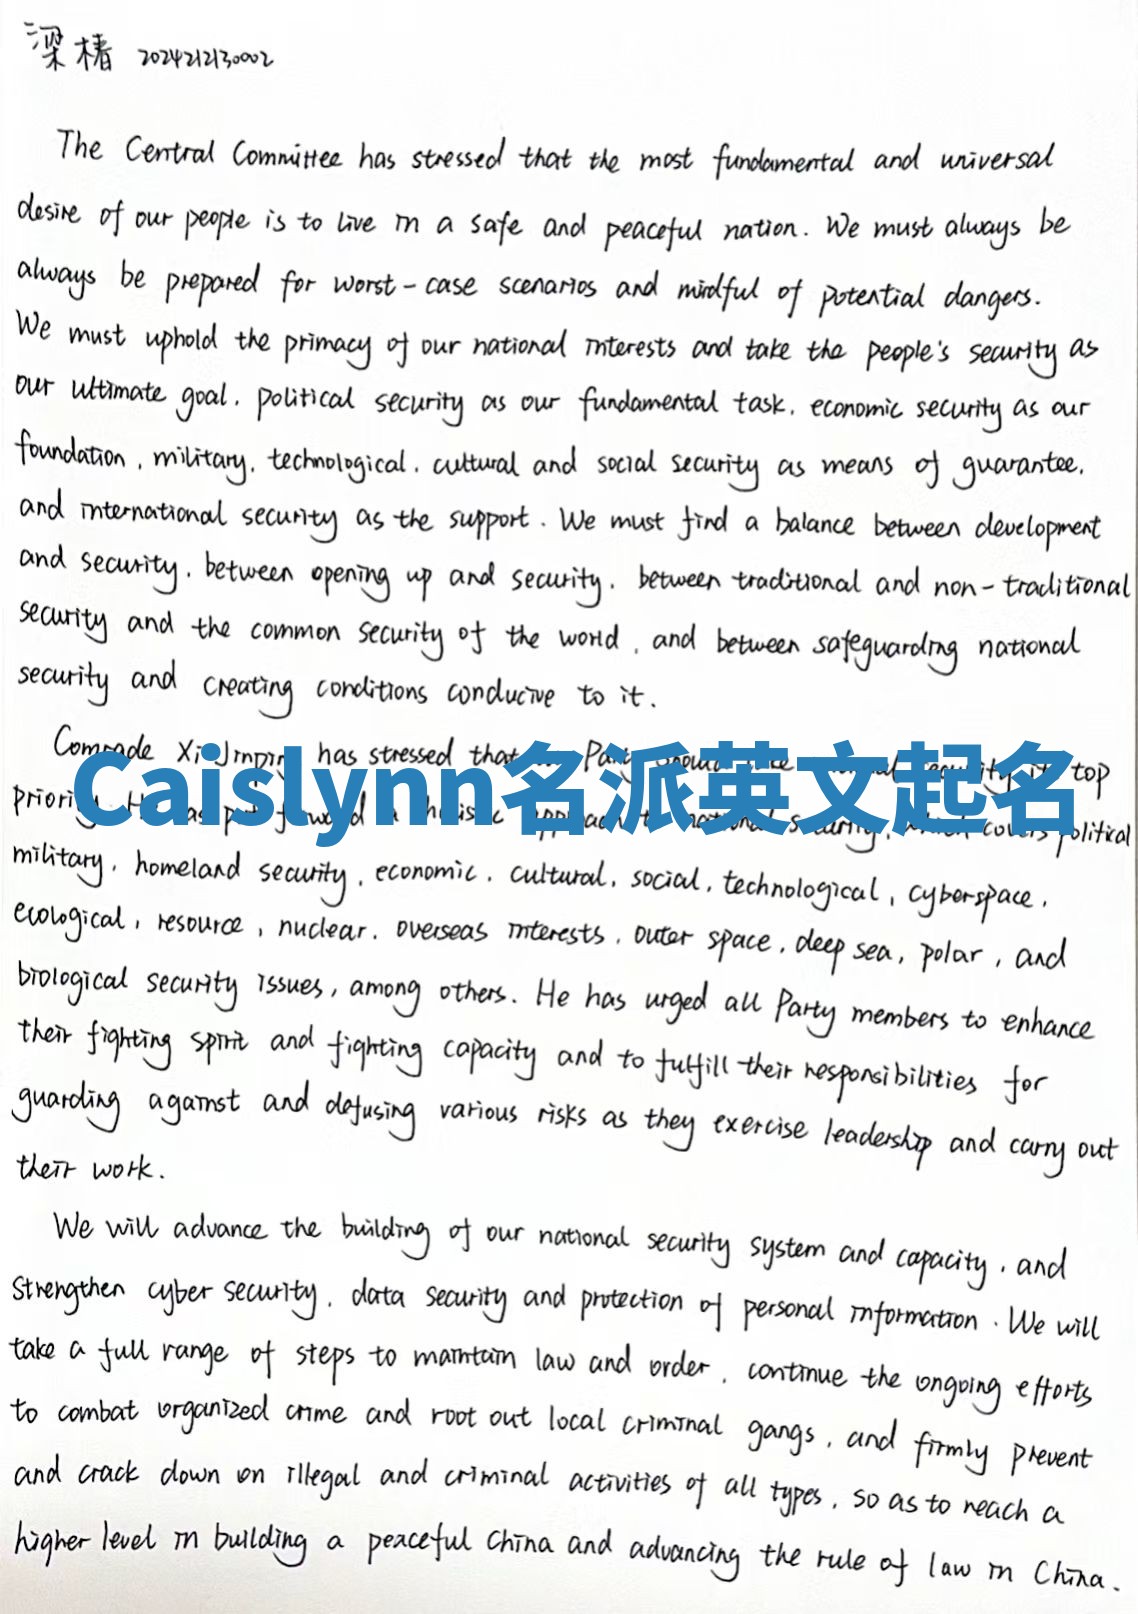 梁椿 2024212130002
The Central Committee has stressed that the most fundamental and universal
desire of our people is to live in a safe and peaceful nation. We must always be
always be prepared for worst-case scenarios and mindful of potential dangers.
We must uphold the primacy of our national interests and take the people's security as
our ultimate goal, political security as our fundamental task, economic security as our
foundation, military, technological, cultural and social security as means of guarantee,
and international security as the support. We must find a balance between development
and security, between opening up and security, between traditional and non-traditional
security and the common security of the world, and between safeguarding national
security and creating conditions conducive to it.
Comrade Xi Jinping has stressed that Party top
Caislynn名派英文起名
political
military, homeland security, economic, cultural, social, technological, cyberspace,
ecological, resource, nuclear, overseas interests, outer space, deep sea, polar, and
biological security issues, among others. He has urged all Party members to enhance
their fighting spirit and fighting capacity and to fulfill their responsibilities for
guarding against and defusing various risks as they exercise leadership and carry out
their work.
We will advance the building of our national security system and capacity, and
strengthen cyber security, data security and protection of personal information. We will
take a full range of steps to maintain law and order, continue the ongoing efforts
to combat organized crime and root out local criminal gangs, and firmly prevent
and crack down on illegal and criminal activities of all types, so as to reach a
higher level in building a peaceful China and advancing the rule of law in China.